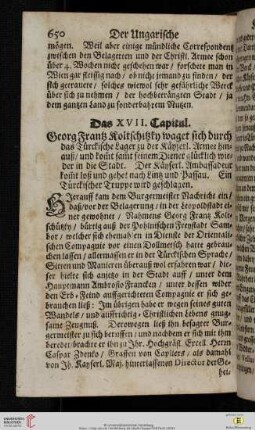 650 Der Ungarische
mögen. Weil aber einige mündliche Correspondentz
zwischen den Belägerten und der Christl. Armee schon
über 4. Wochen nicht geschehen war/ forschete man in
Wien gar fleissig nach/ ob nicht jemand zu finden/ der
sich getrauete/ solches wiewol sehr gefährliche Werck
über sich zu nehmen/ der hochbetrangten Stadt/ ja
dem gantzen Land zu sonderbahrem Nutzen.
Das XVII. Capital.
Georg Frantz Koltschitzky waget sich durch
das Türckische Lager zu der Käyserl. Armee hin-
auß/ und kömt samt seinem Diener glücklich wie-
der in die Stadt. Der Käyserl. Ambassadeur
kömt loß und gehet nach Lintz und Passau. Ein
Türckischer Truppe wird geschlagen.
Hierauff kam dem Burgermeister Nachricht ein/
daß/ vor der Belägerung/ in der Leopoldstadt ei-
ner gewohnet/ Nahmens Georg Frantz Kolt-
schützky/ bürtig auß der Polnischen Freystadt Sam-
bor/ welcher sich ehemals en in Dienste der Orientali-
schen Compagnie vor einen Dollmetsch hatte gebrau-
chen lassen/ allermassen er in der Türckischen Sprache/
Sitten und Manieren überauß wol erfahren war/ die-
ser hielte sich anjetzo in der Stadt auff/ unter dem
Hauptmann Ambrosio Francken/ unter dessen wider
den Erb-Feind auffgerichteten Compagnie er sich ge-
brauchen ließ: Im übrigen habe er wegen seines guten
Wandels/ und auffrichtig-Christlichen Lebens gnug-
same Zeugnuß. Derowegen ließ ihn besagter Bur-
germeister zu sich beruffen/ und nachdem er sich mit ihm
beredet/ brachte er ihn zu Ihr. Hochgräfl. Excell. Herrn
Caspar Zdenko/ Graffen von Capliers/ als damahls
von Ih. Kayserl. Maj. hinterlassenen Director der Ge-
hei-